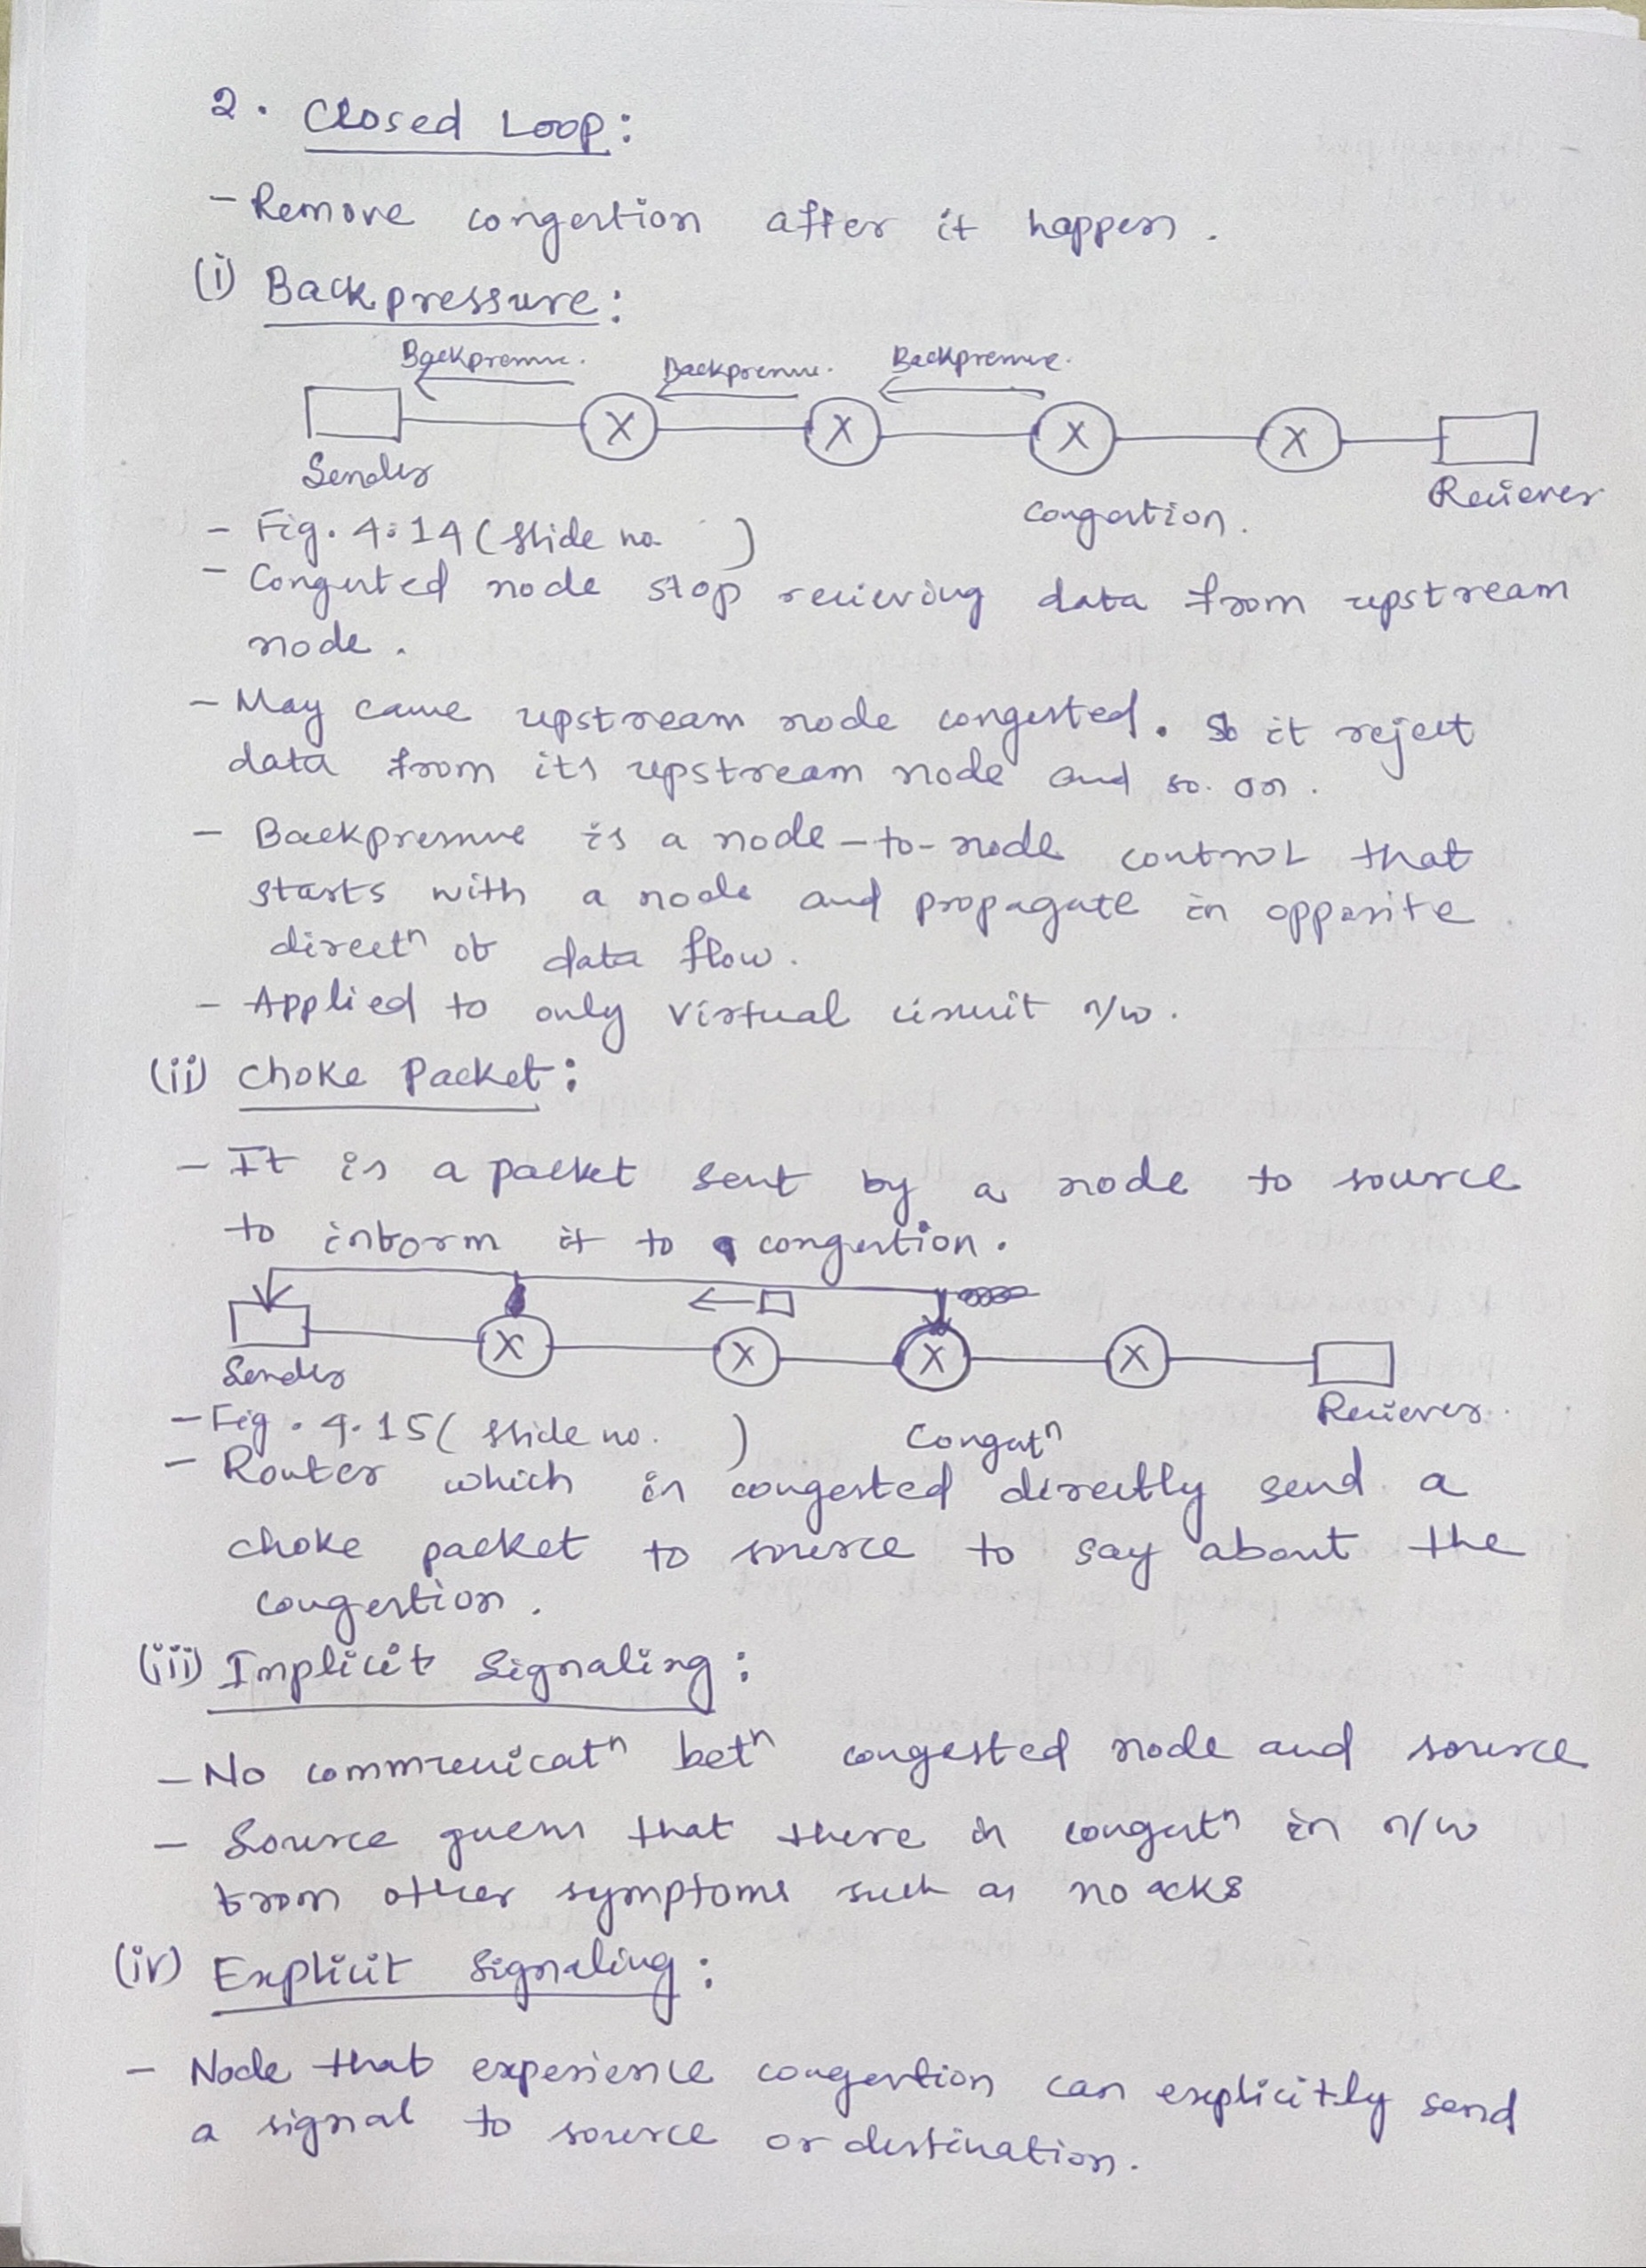 2. Closed Loop:
- Remove congestion after it happen.
(i) Backpressure:
Backpressure. Backpressure. Backpressure.
X X X X
Sender Reciever
Congestion.
- Fig. 4.14 (Slide no. )
- Congested node stop recieving data from upstream
node.
- May cause upstream node congested. So it reject
data from its upstream node and so on.
- Backpressure is a node-to-node control that
starts with a node and propagate in opposite
directⁿ of data flow.
- Applied to only virtual circuit n/w.
(ii) Choke Packet:
- It is a packet sent by a node to source
to inform it to congestion.
X X X X
Sender Reciever.
- Fig. 4.15 ( Slide no. ) Congestⁿ
- Router which is congested directly send a
choke packet to source to say about the
congestion.
(iii) Implicit Signaling:
- No communicatⁿ betⁿ congested node and source
- Source guess that there is congestⁿ in n/w
from other symptoms such as no acks
(iv) Explicit Signaling:
- Node that experience congestion can explicitly send
a signal to source or destination.